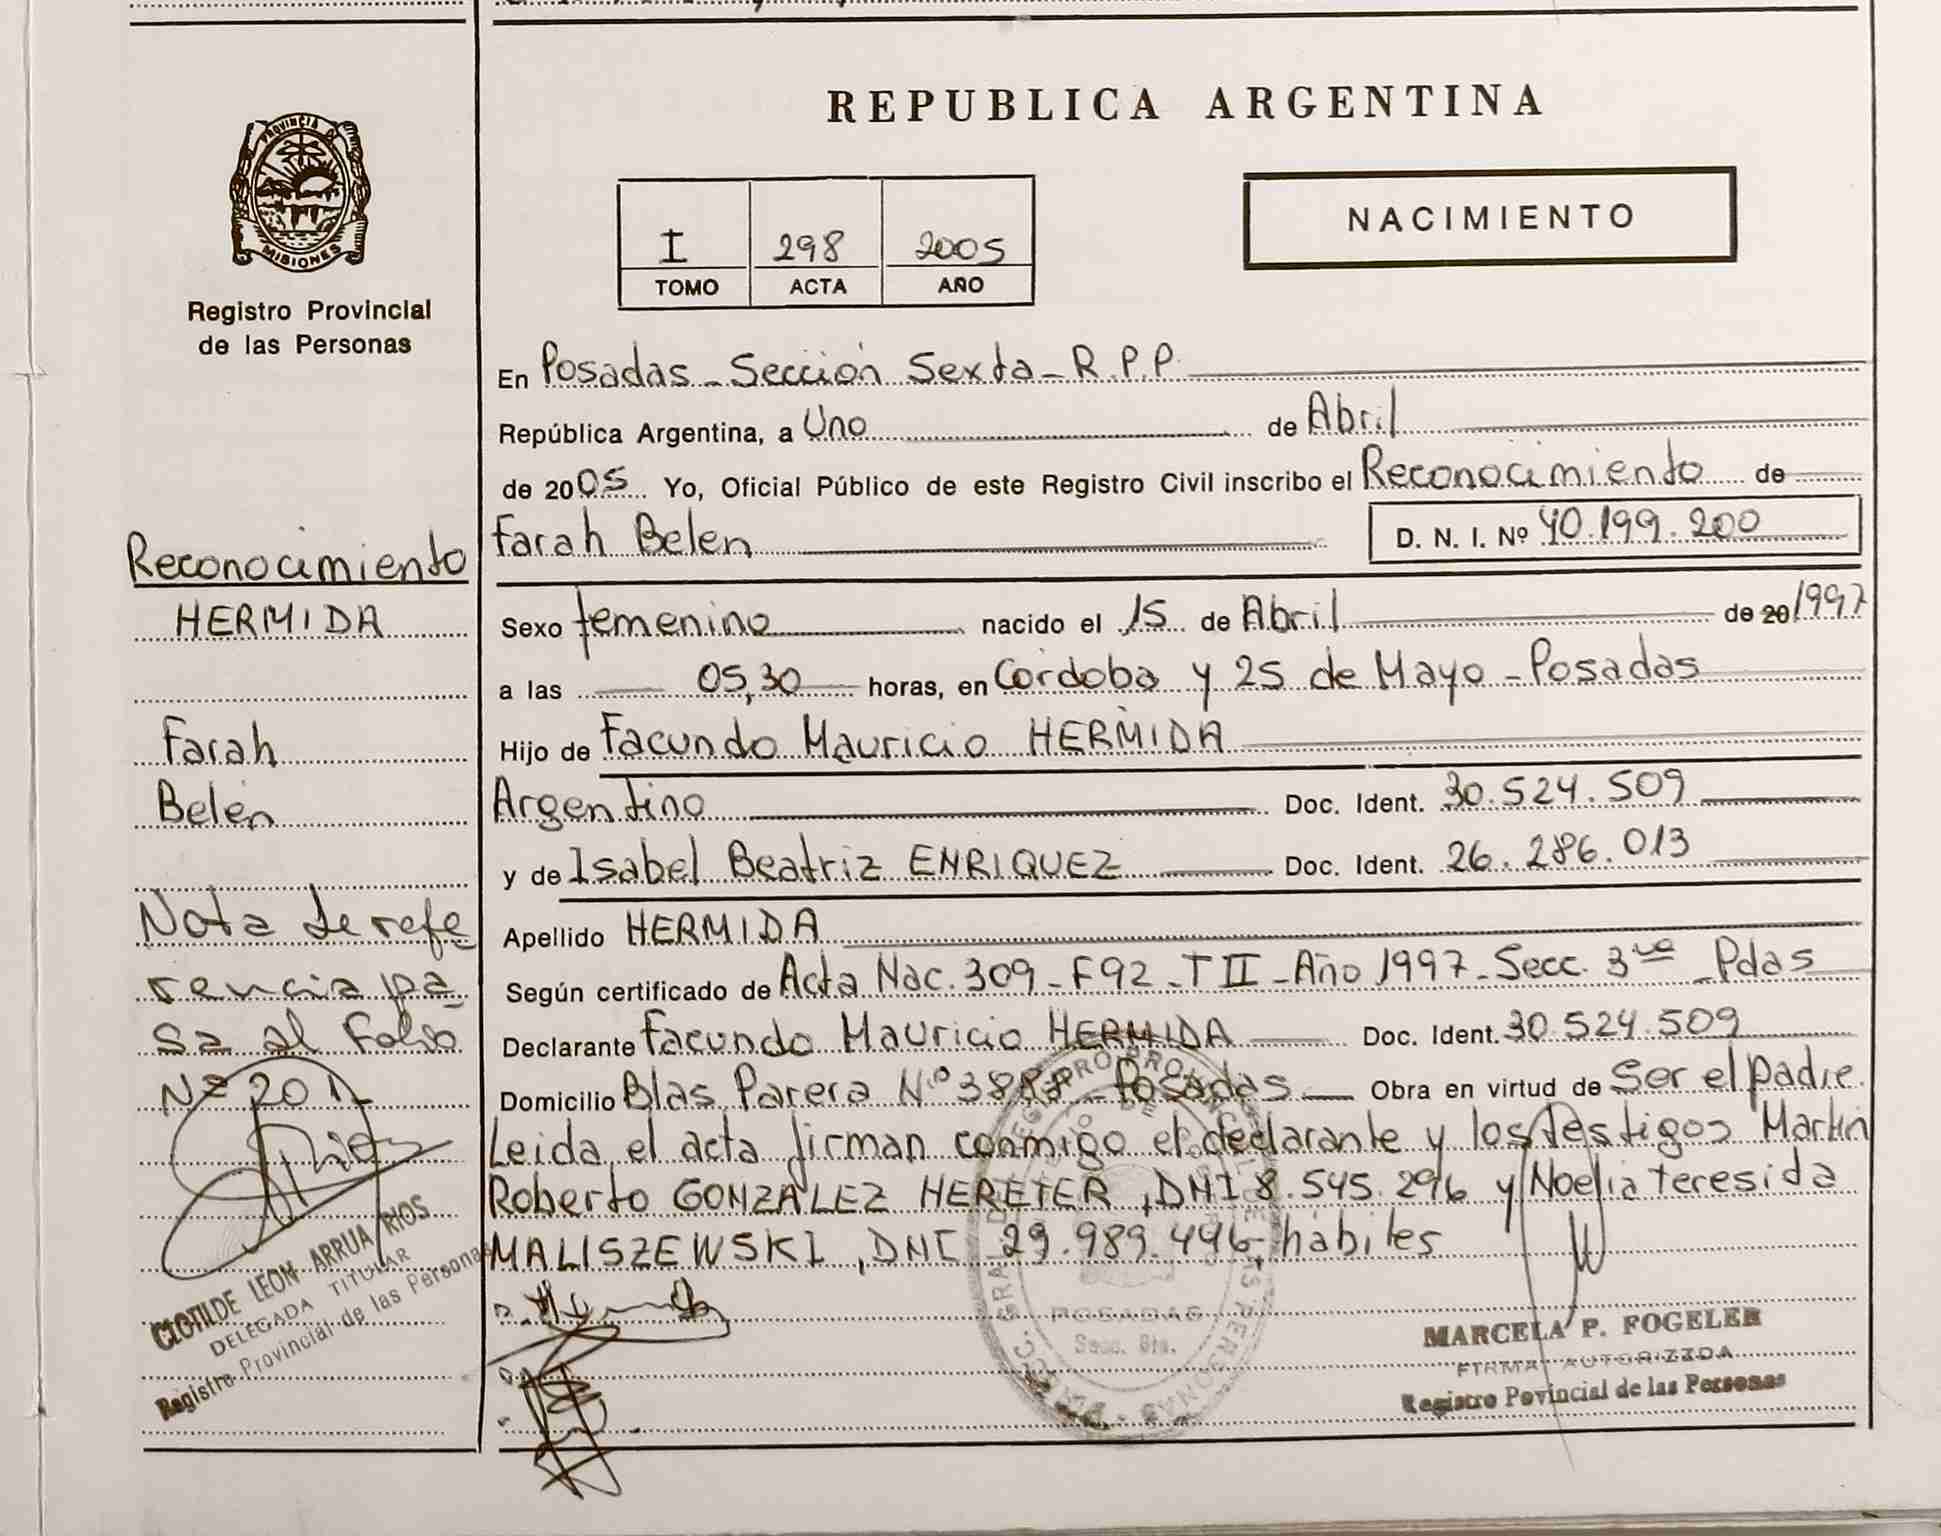 PROVINCIA DE
MISIONES
Registro Provincial
de las Personas
Reconocimiento
HERMIDA
Farah
Belén
Nota de refe
rencia pa
sa al Folio
Nº 201
CLOTILDE LEON ARRUA RIOS
DELEGADA TITULAR
Registro Provincial de las Personas
REPUBLICA ARGENTINA
I 298 2005
TOMO ACTA AÑO
NACIMIENTO
En Posadas - Sección Sexta - R.P.P.
República Argentina, a Uno de Abril
de 2005 Yo, Oficial Público de este Registro Civil inscribo el Reconocimiento de
Farah Belen D. N. I. Nº 40.199.200
Sexo femenino nacido el 15 de Abril de 20 1997
a las 05,30 horas, en Córdoba y 25 de Mayo - Posadas
Hijo de Facundo Mauricio HERMIDA
Argentino Doc. Ident. 30.524.509
y de Isabel Beatriz ENRIQUEZ Doc. Ident. 26.286.013
Apellido HERMIDA
Según certificado de Acta Nac. 309 - F92 - T II - Año 1997 - Secc. 3ra - Pdas
Declarante Facundo Mauricio HERMIDA Doc. Ident. 30.524.509
Domicilio Blas Parera Nº 3888 - Posadas Obra en virtud de Ser el padre.
Leida el acta firman conmigo el declarante y los testigos Martin
Roberto GONZALEZ HERETER, DNI 8.545.296 y Noelia teresida
MALISZEWSKI, DNI 29.989.496, hábiles
POSADAS
Secc. 6ta.
MARCELA P. FOGELER
FIRMA AUTORIZADA
Registro Povincial de las Personas